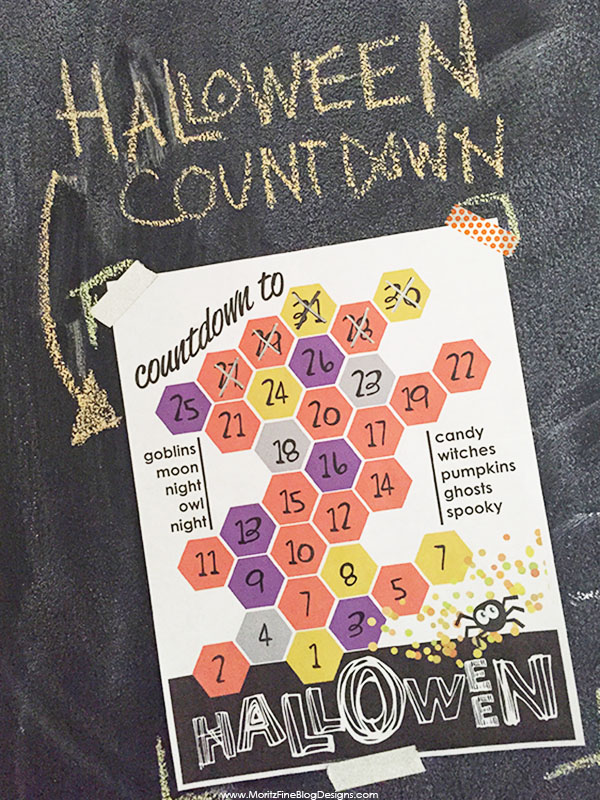 HALLOWEEN
COUNTDOWN
countdown to
31 30
29 28
27 26
24 23 22
25 21 20 19
18 17
16
15 14
13 12
11 10
9 8 7
7 5
4 3
2 1
goblins
moon
night
owl
night
candy
witches
pumpkins
ghosts
spooky
HALLOWEEN
www.MoritzFineBlogDesigns.com